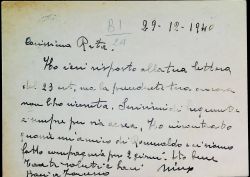 B1
29
29-12-1940
Carissima Rita.
Ho ieri risposto alla tua lettera
del 23 ott, ma la precedente tua, ancora
non l'ho ricevuta. Scrivimi di frequente
e sempre per via aerea. Ho incontrato
quassù un amico di Romualdo e ci siamo
fatto compagnia per 2 giorni. Sto bene
saluti e baci